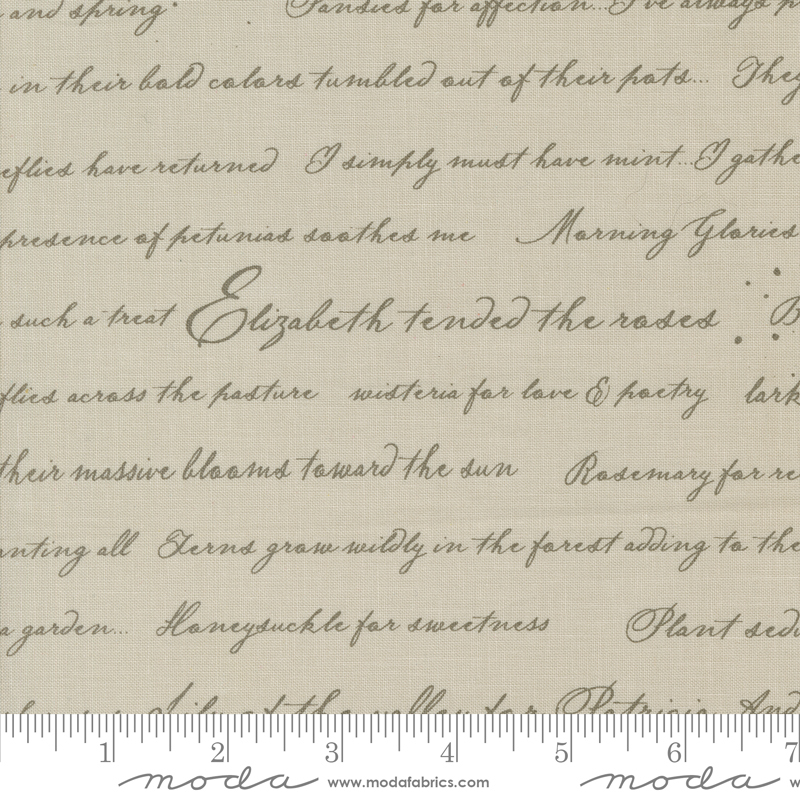 and spring. Pansies for affection...I've always
in their bold colors tumbled out of their pots... They
eflies have returned I simply must have mint...I gathe
presence of petunias soothes me Morning Glories
such a treat Elizabeth tended the roses B
flies across the pasture wisteria for love & poetry lark
their massive blooms toward the sun Rosemary for re
anting all Ferns grow wildly in the forest adding to the
a garden... Honeysuckle for sweetness Plant sed
Lily of the valley for Patricia And
1 2 3 4 5 6 7
moda www.modafabrics.com moda w